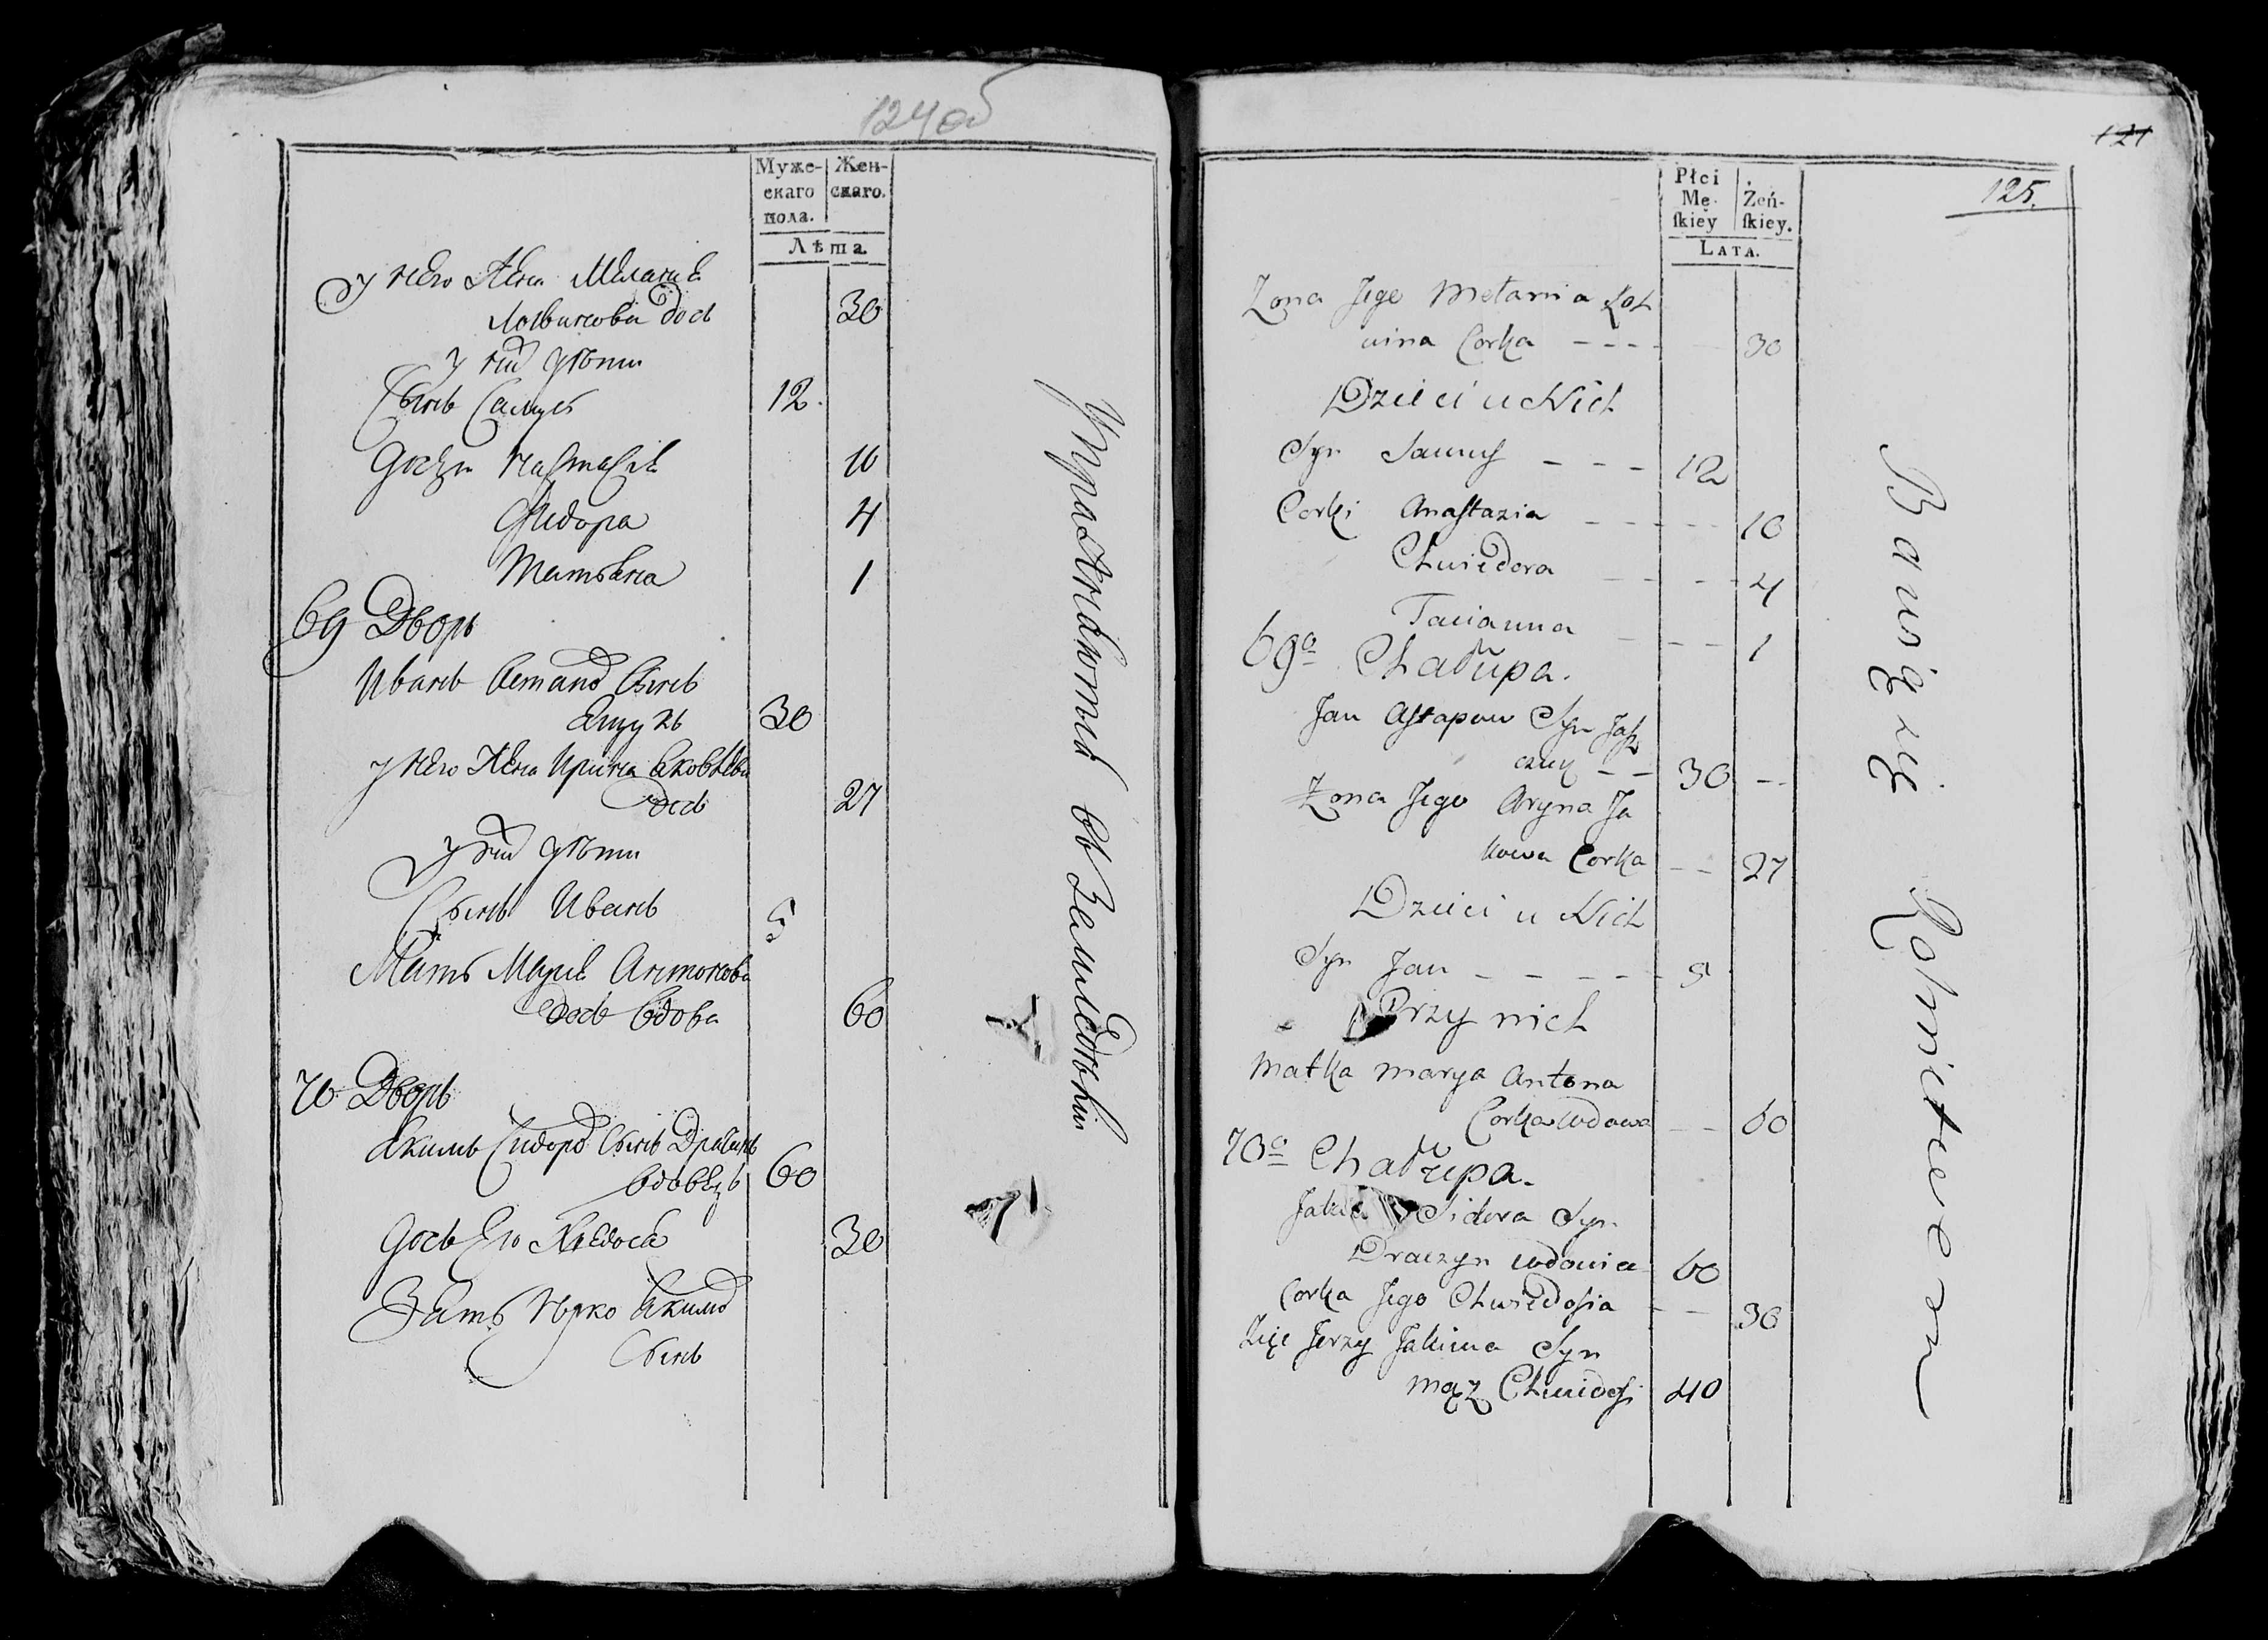 124 об
Муже-
скаго
пола.
Жен-
скаго.
Лѣта.
У него Жена Меланиѣ
Логвинова дочь
30
У них дѣти
Сынъ Самусь
12.
Дочери Настасиѣ
10
Фiедора
4
Татьяна
1
69 Дворъ
Иванъ Астапов Сынъ
30
У него Жена Ирина Яковлѣва
дочь
27
У них дѣти
Сынъ Иванъ
5
Мать Мариѣ Антонова
дочь вдова
60
70 Дворъ
Якимъ Сидоров Сынъ
вдовецъ
60
Дочь Его Хведося
30
Зять Юрко Якимов
Сынъ
Упражняютсѣ въ Земледѣлии
121
125.
Płci
Mę-
ſkiey
Żeń-
ſkiey.
LATA.
Zona Jego Mełania Łoh
wina Corka - - - -
30
Dzieci u Nich
Syn Samuś - - -
12
Corki Anastazia - - - - -
10
Chwiedora - - - -
4
Tacianna - - - -
1
69a Chałupa.
Jan Astapow Syn Jasz
czuk - -
30 -
Zona Jego Aryna Ja
kowa Corka - -
27
Dzieci u Nich
Syn Jan - - - - -
5
Przy nich
Matka Marya Antona
Corka wdowa - -
60
70a Chałupa.
Sidora Syn
Draczyn wdowiec
60
Corka Jego Chwiedosia - -
30
Zięć Jerzy Jakima Syn
mąż Chwiedosi
40
Bawią się Rolnictwem